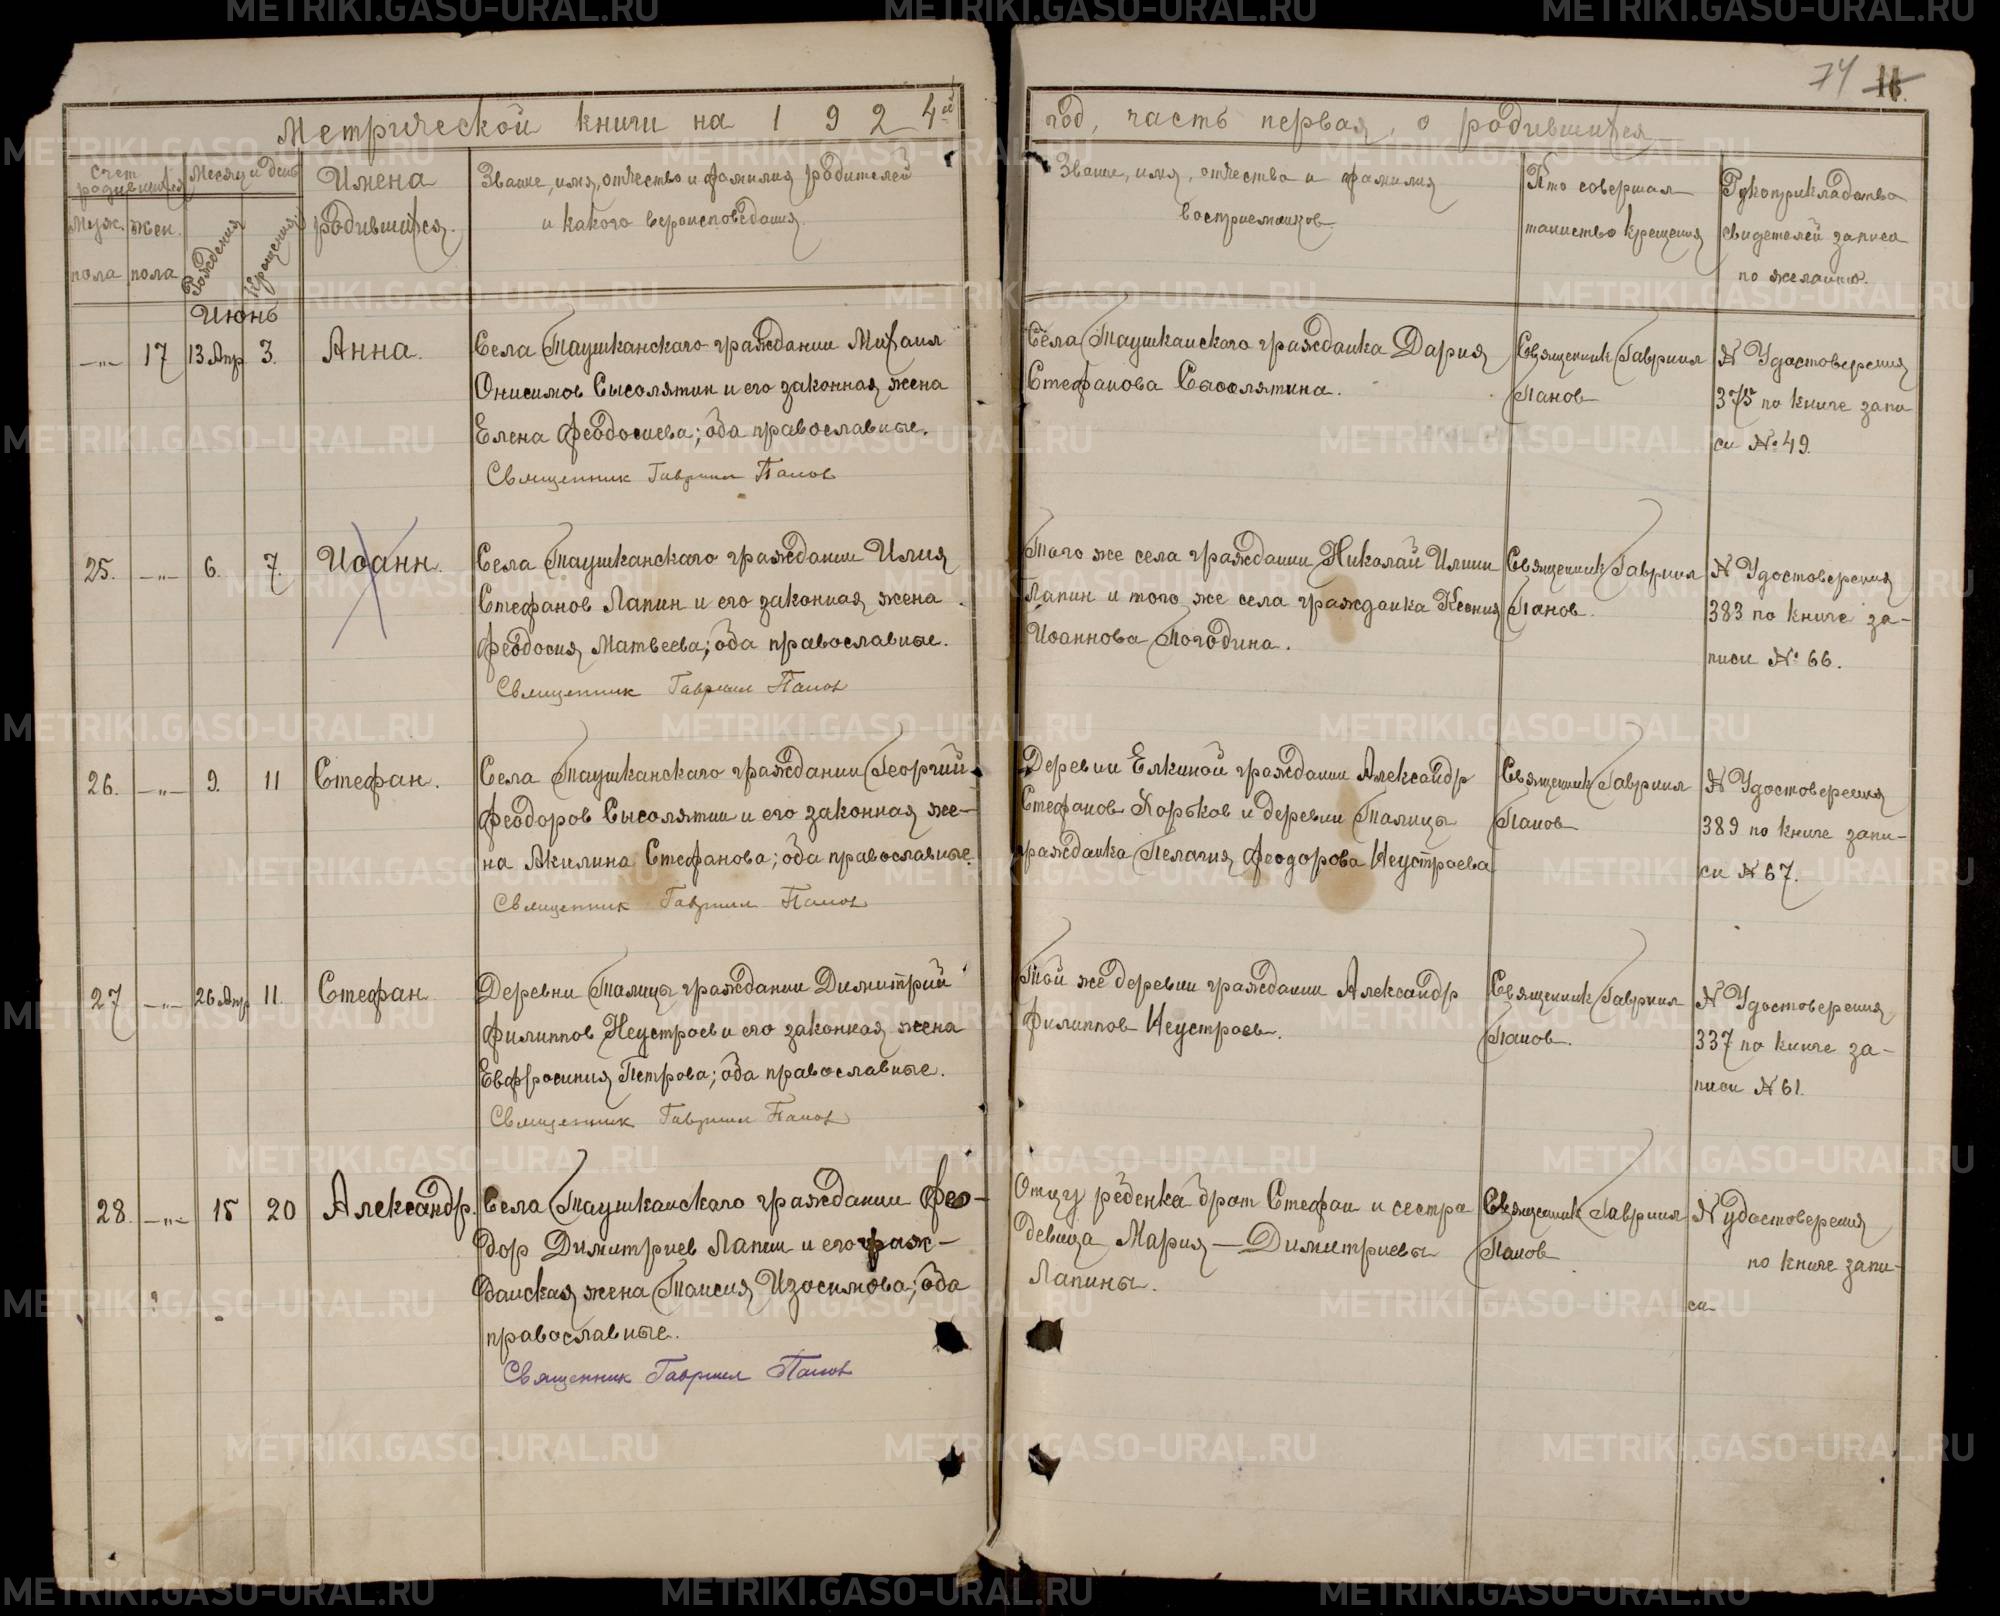 74 11.
Метрической книги на 1924й
год, часть первая, о родившихся
Счет родившихся
Месяц и день
Имена
родившихся.
Звание, имя, отчество и фамилия родителей
и какого вероисповедания.
Муж. пола
Жен. пола
Рождения
Крещения
Звание, имя, отчество и фамилия
восприемников
Кто совершал
таинство крещения
Рукоприкладство
свидетелей записи
по желанию.
Июнь
—„— 17 13 Апр 3. Анна.
Села Таушканскаго гражданин Михаил
Онисимов Сысолятин и его законная жена
Елена Феодосиева; оба православные.
Священник Гавриил Панов
Села Таушканскаго гражданка Дария
Стефанова Сысолятина.
Священник Гавриил
Панов
№ Удостоверения
375 по книге запи
си № 49.
25. —„— 6. 7. Иоанн.
Села Таушканскаго гражданин Илия
Стефанов Лапин и его законная жена
Феодосия Матвеева; оба православные.
Священник Гавриил Панов
Того же села гражданин Николай Илиин
Лапин и того же села гражданка Ксения
Иоаннова Погодина.
Священник Гавриил
Панов.
№ Удостоверения
383 по книге за-
писи № 66.
26. —„— 9. 11 Стефан.
Села Таушканскаго гражданин Георгий
Феодоров Сысолятин и его законная же-
на Акилина Стефанова; оба православные.
Священник Гавриил Панов
Деревни Елкиной гражданин Александр
Стефанов Хорьков и деревни Талицы
гражданка Пелагия Феодорова Неустроева
Священник Гавриил
Панов
№ Удостоверения
389 по книге запи-
си № 67.
27 —„— 26 Апр 11. Стефан
Деревни Талицы гражданин Димитрий
Филиппов Неустроев и его законная жена
Евфросиния Петрова; оба православные.
Священник Гавриил Панов
Той же деревни гражданин Александр
Филиппов Неустроев.
Священник Гавриил
Панов.
№ Удостоверения
337 по книге за-
писи № 61.
28. —„— 15 20 Александр.
Села Таушканскаго гражданин Фео-
дор Димитриев Лапин и его граж-
данская жена Таисия Изосимова; оба
православные.
Священник Гавриил Панов
Отцу ребенка брат Стефан и сестра
девица Мария — Димитриевы
Лапины.
Священник Гавриил
Панов
№ удостоверения
по книге запи-
си
METRIKI.GASO-URAL.RU